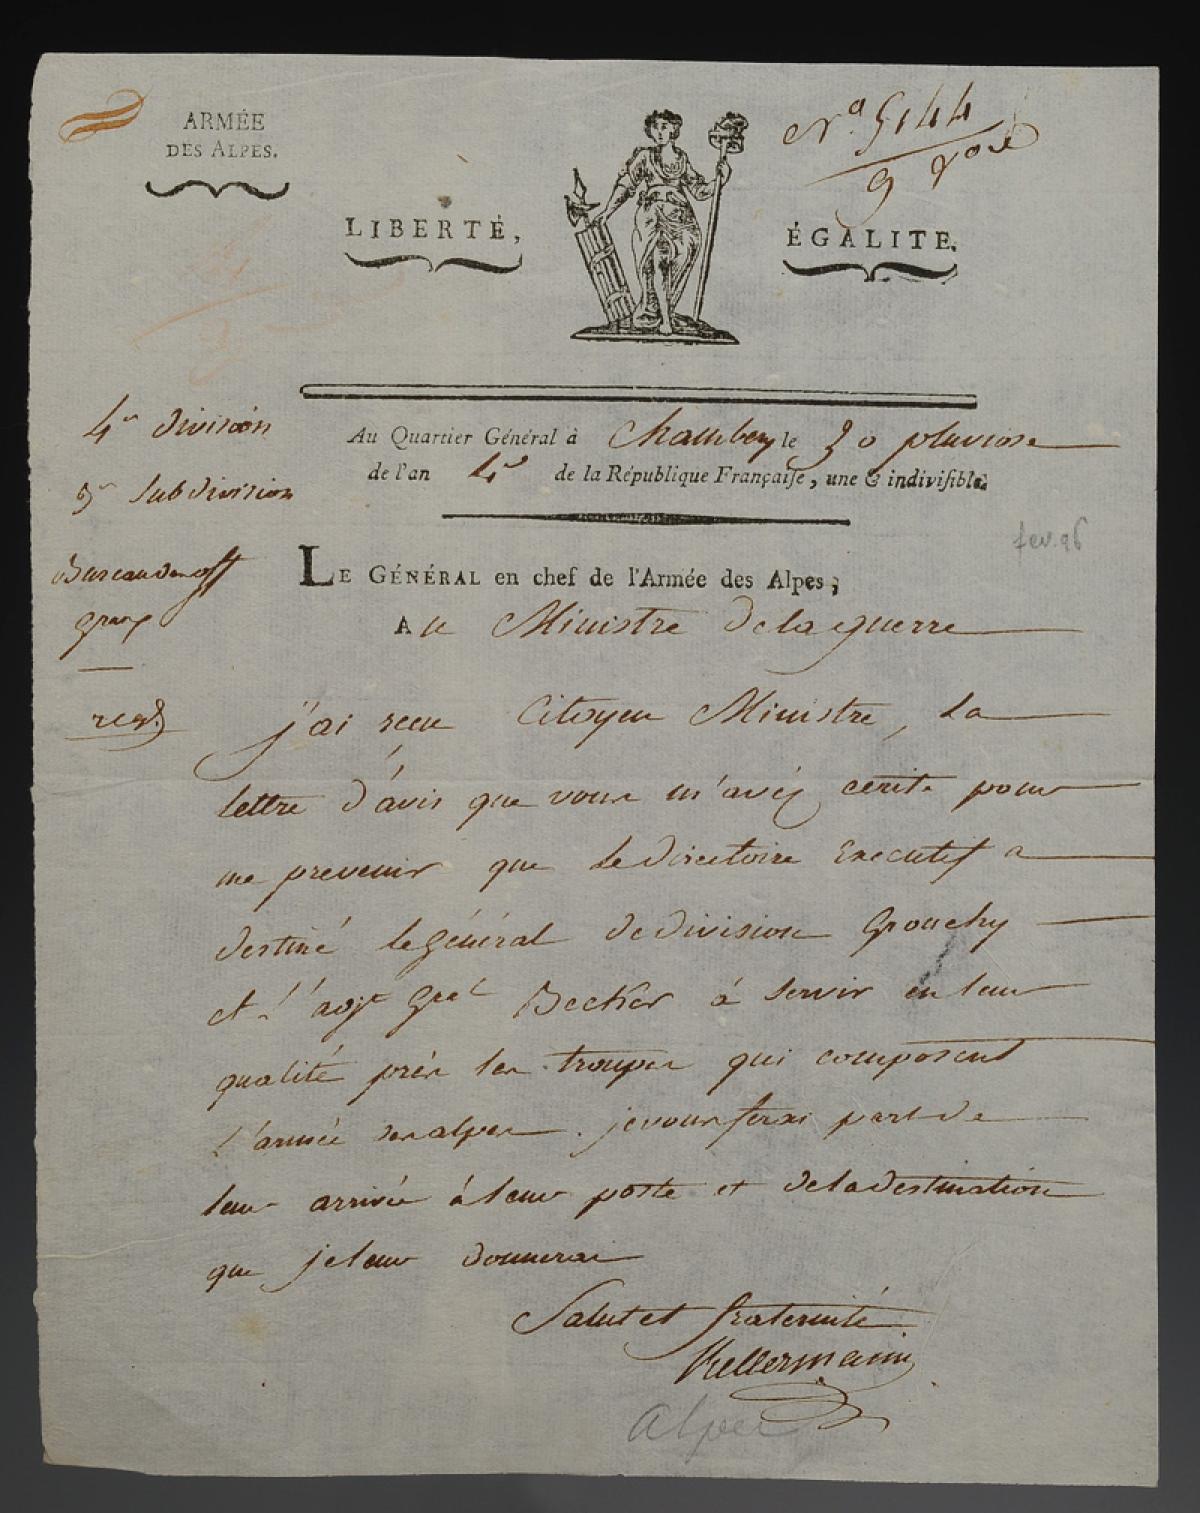 ARMÉE
DES ALPES.
Nº. 5144
9
LIBERTÉ,
ÉGALITE.
4e division
Au Quartier Général à Chambery le 30 pluviose
de l'an 4e de la République Française, une & indivisible.
5e subdivision
fev. 96
Bureau des off
graux
LE GÉNÉRAL en chef de l'Armée des Alpes,
Au Ministre de la guerre
j'ai recu Citoyen Ministre, la
lettre d'avis que vous m'avéz ecrite pour
me prevenir que le directoire Executif a
destiné le général de division Grouchy
et l'adjt Gral Becker à servir en leur
qualité près les troupes qui composent
l'armée des alpes. je vous ferai part de
leur arrivée à leur poste et de la destination
que je leur donnerai
Salut et fraternité
Kellermann
Alpes